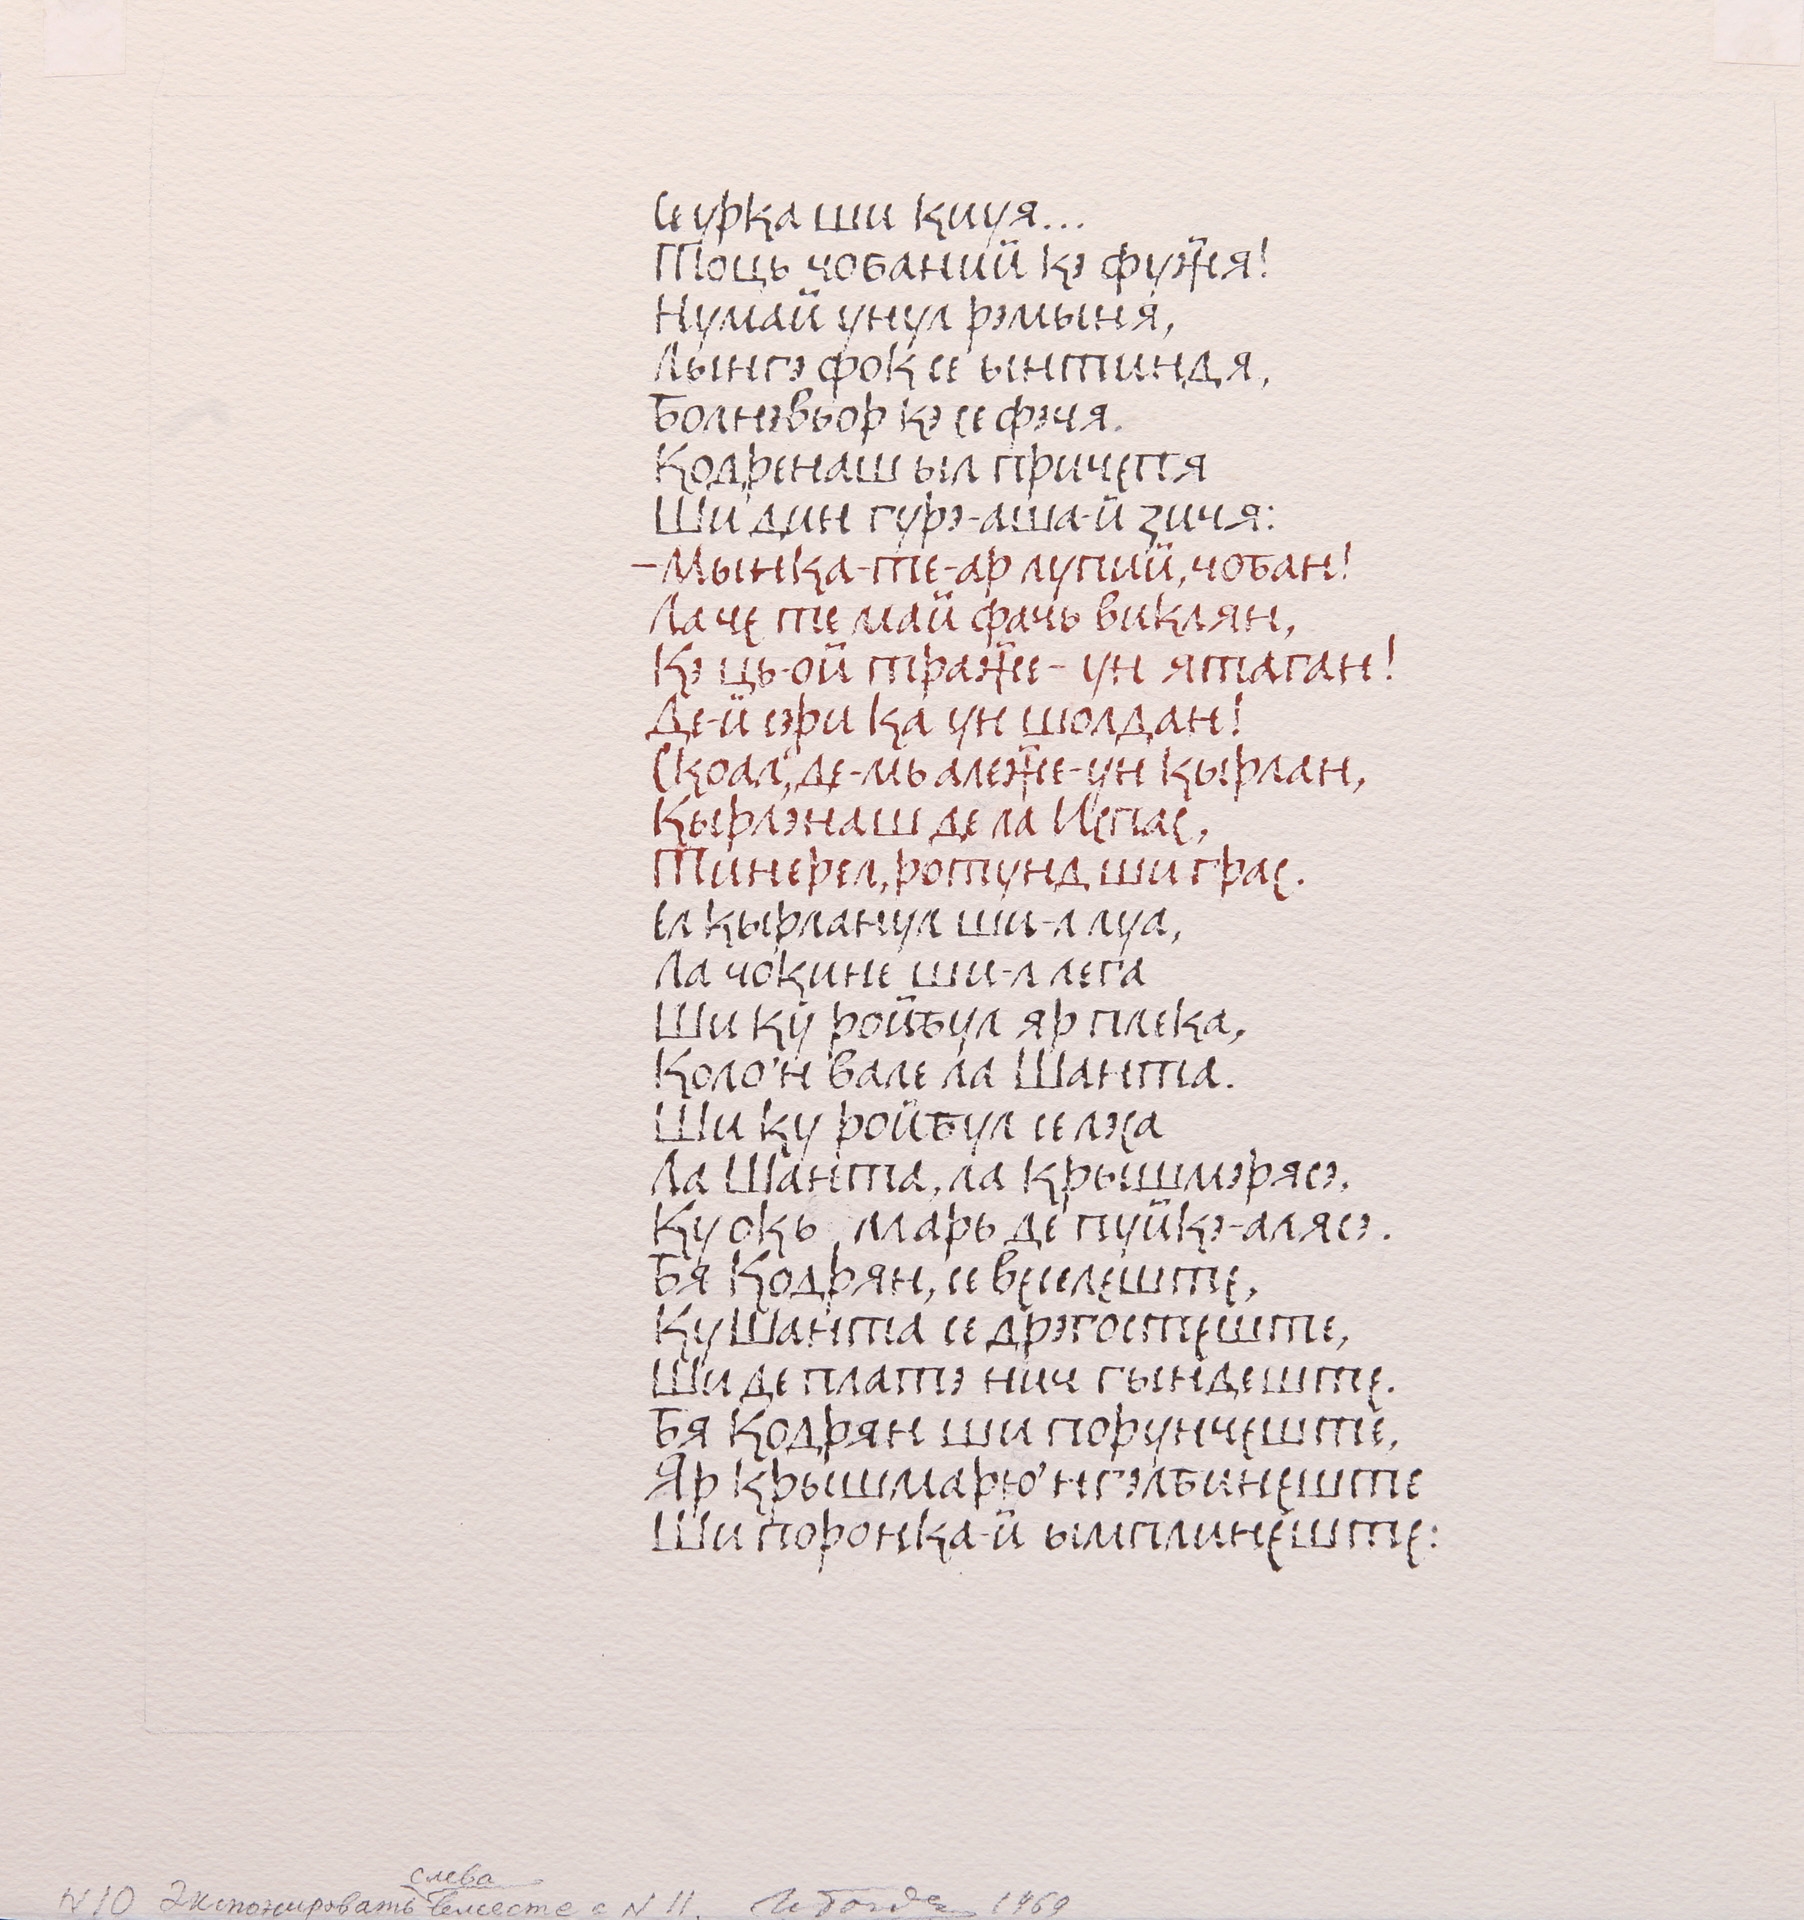 Се урка ши киуя...
Тоць чобаний кэ фуӂя!
Нумай унул рэмыня,
Лынгэ фок се ынтиндя,
Болнэвьор кэ се фэчя.
Кодренаш ыл причепя
Ши дин гурэ-аша-й зичя:
–Мынка-те-ар лупий, чобан!
Ла че те май фачь виклян,
Кэ ць-ой траӂе– ун ятаган!
Де-й сэри ка ун шолдан!
Скоал', де-мь алеӂе-ун кырлан,
Кырлэнаш де ла Испас,
Тинерел, ротунд ши грас.
Ел кырланул ши-л луа,
Ла чокине ши-л лега
Ши ку ройбул яр плека,
Коло'н вале ла Шанта.
Ши ку ройбул се лэса
Ла Шанта, ла крышмэрясэ,
Ку окь марь де пуйкэ-алясэ.
Бя Кодрян, се веселеште,
Ку Шанта се дрэгостеште,
Ши де платэ нич гындеште.
Бя Кодрян ши порунчеште,
Яр крышмарю'н гэлбинеште
Ши поронка-й ымплинеште:
слева
N10 Экспонировать вместе с N 11. 1969